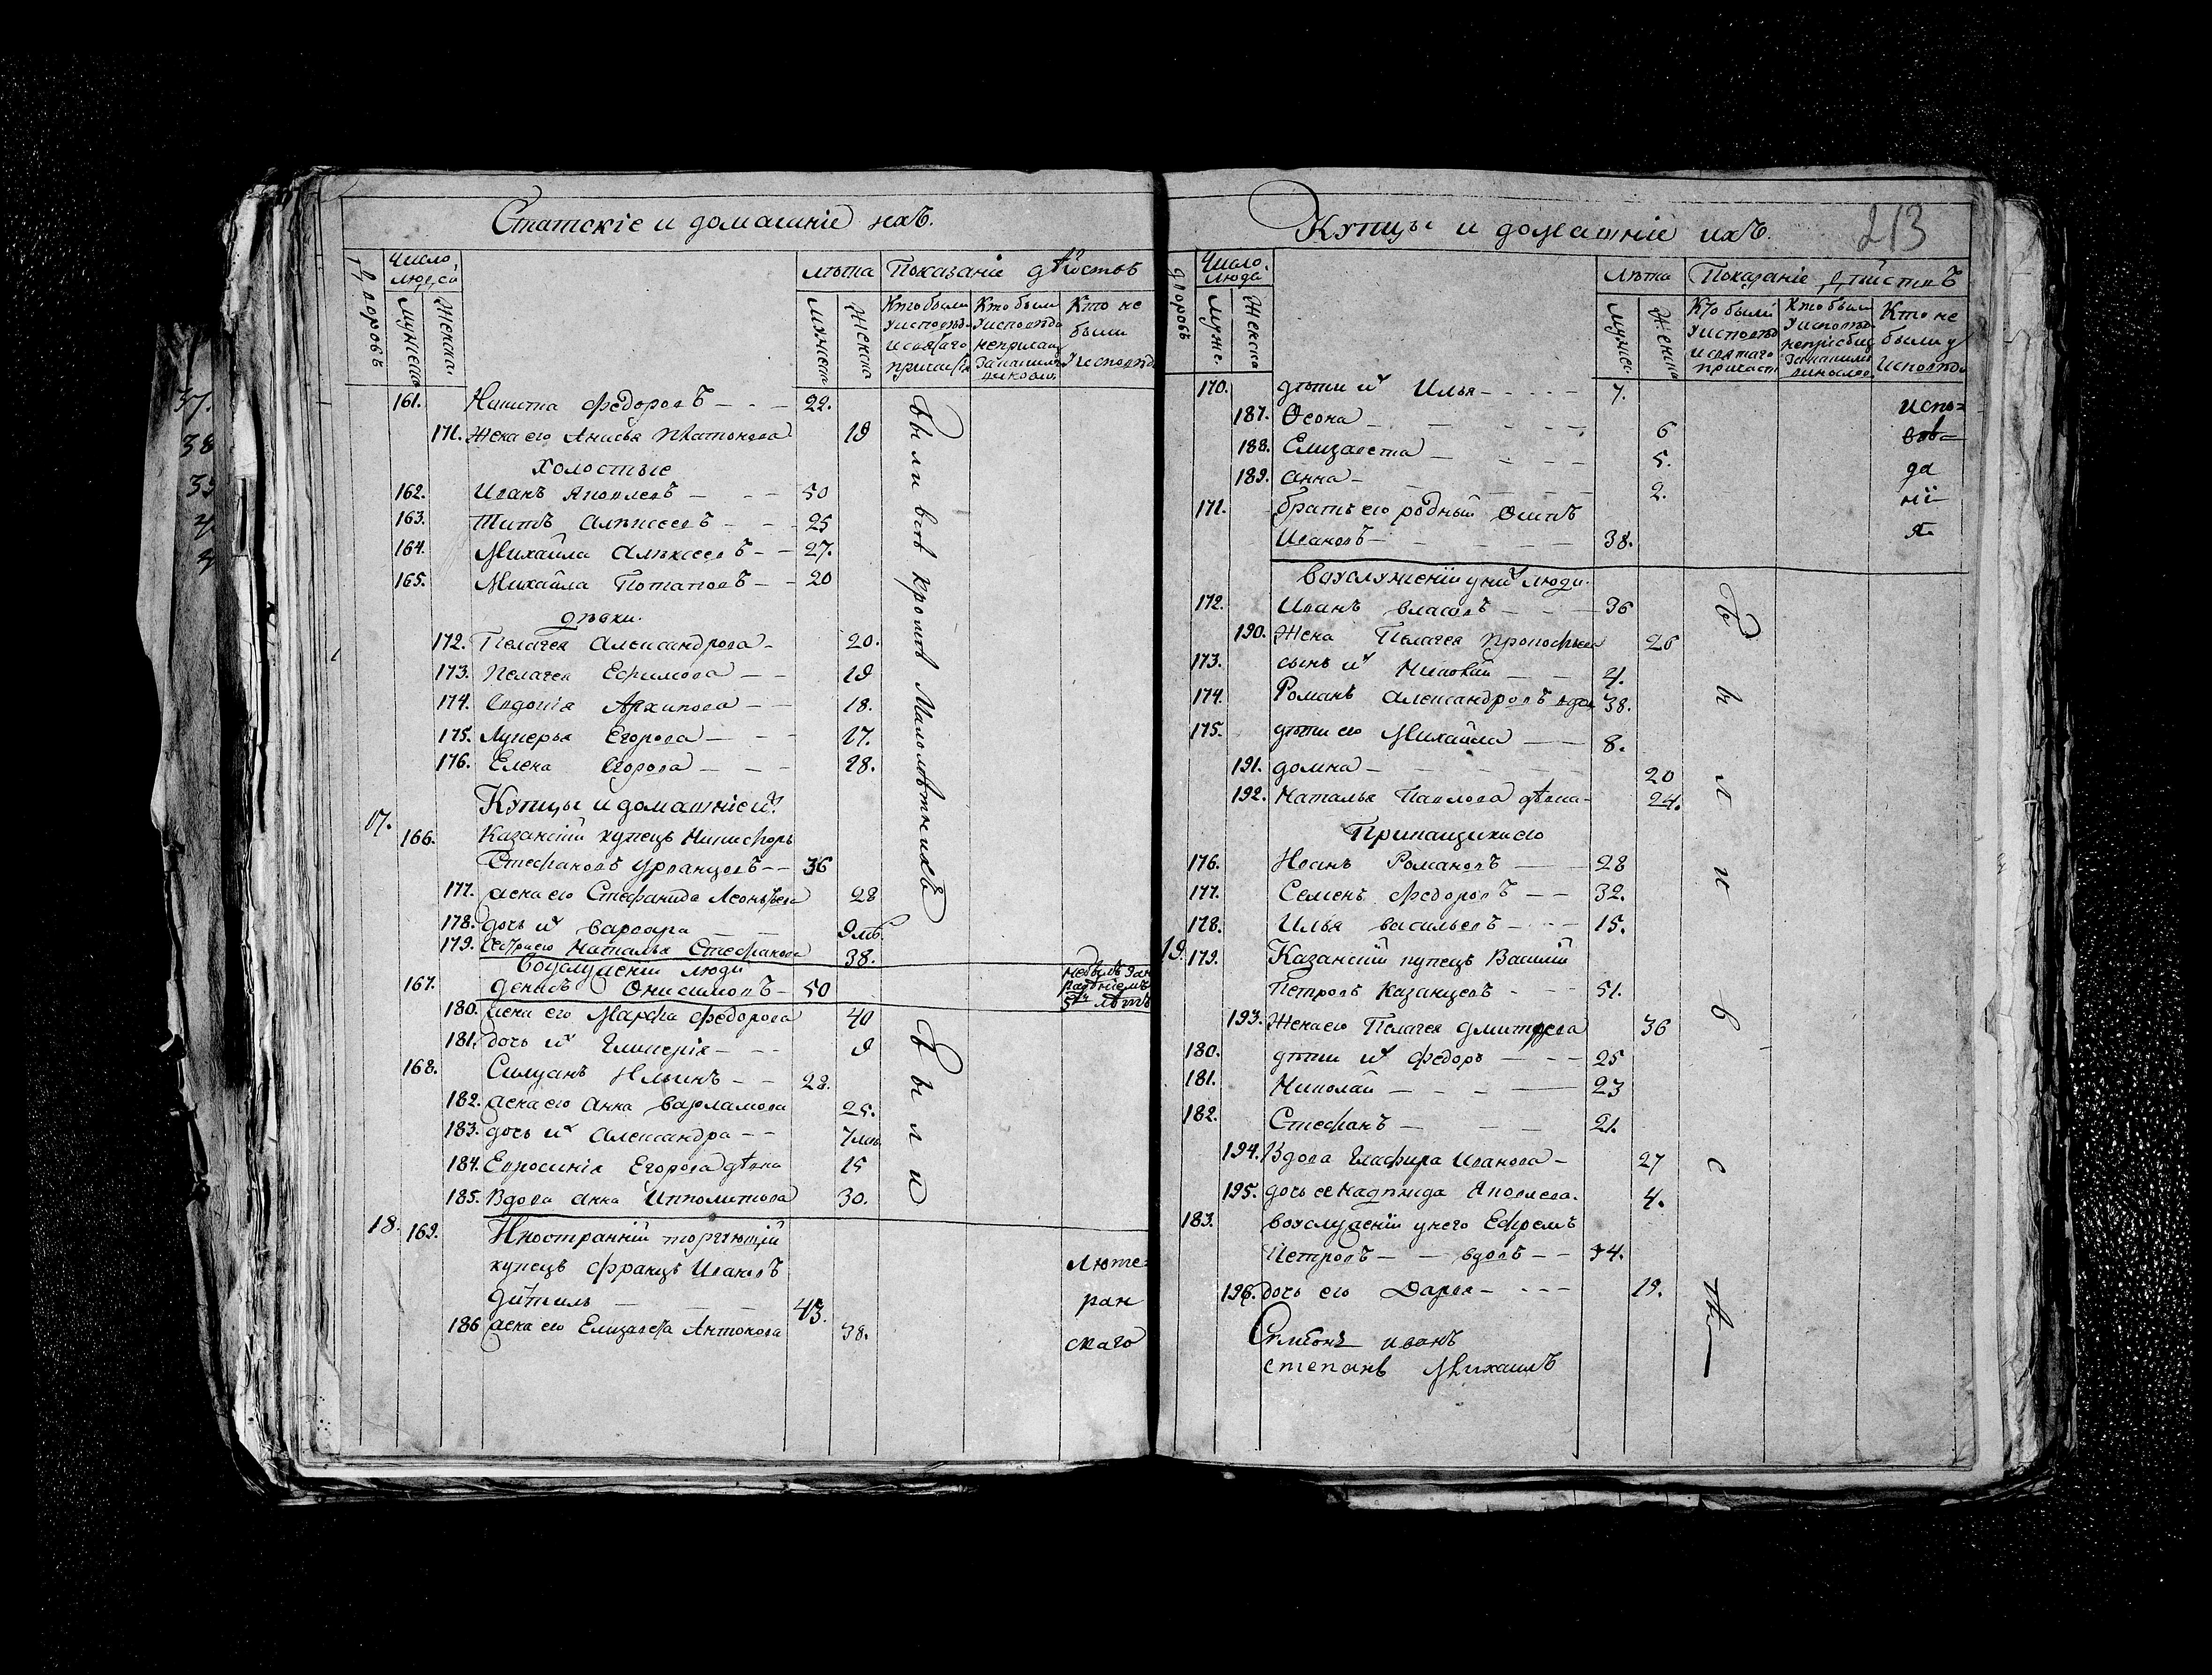 Статскіе и домашніе ихъ.
Число людей
лѣта
Показаніе дѣйствъ
дворовъ
мужеска
женска.
мужеска
женска
Кто были
у исповѣди
и святаго
причастія
Кто были
у исповѣди
Кто не
были
у исповѣди
161. Никита Федоровъ — - — 22.
171. Жена его Анисья Платонова 19
холостые
162. Иванъ Яковлевъ — - — 50
163. Титъ Алексеевъ - — - 25
164. Михайла Алексеевъ - — 27.
165. Михайла Потаповъ - - 20
дѣвки.
172. Пелагея Александрова - 20.
173. Пелагея Ефимова — — 19
174. Евдокія Архипова — — 18.
175. Лукерья Егорова — - — 17.
176. Елена Егорова — — - 28.
Были всѣ кромѣ Малолѣтнихъ
Купцы и домашніе их
17. 166. Казанскій купецъ Никифоръ
Стефановъ Урванцовъ - - 36
177. жена его Стефанида Леонтьева 28
178. дочь их варвара — — 9 мѣ.
179. сестра его Наталья Стефанова 38.
Воуслуженіи люди
167. денисъ Онисимовъ - 50
5ти лѣтъ
180. жена его Марфа Федорова 40
181. дочь их Гликерія - — - 9
168. Силуанъ Ильинъ - — 28.
182. жена его Анна Варламова 25.
183. дочь их Александра - - 7 мѣ.
184. Евросинія Егорова дѣвка 15
185. Вдова Анна Ипполитова 30.
Были
18. 169. Иностранній торгующій
купецъ Францъ Ивановъ
дитиль — — — 43.
186 жена его Елизавета Антонова 38.
Люте=
ран
скаго
Купцы и домашніе ихъ.
213
Число людей
лѣта
Показаніе дѣйствъ
дворовъ
муже.
женска
мужес.
женска
Кто были
у исповѣд
и святаго
причаст
Кто были
у исповѣд
Кто не
были у
исповѣд.
170. дѣти их Илья - - - - - 7.
187. Феона — — — 6
188. Елизавета — - — 5.
189. анна - — — 2.
171. братъ его родный Филипъ
Ивановъ — — — 38.
испо=
вѣ=
да
ні
я
Воуслуженіи у них люди.
172. Иванъ власовъ — - — 36
190. Жена Пелагея Прокофьева 26
173. сынъ их Николай — — 4.
174. Романъ Александровъ вдов 38.
175. дѣти его Михайла — — 8.
191. домна — — — 20
192. Наталья Павлова дѣвка - 24.
Прикащики его
176. Иванъ Романовъ — — 28
177. Семенъ Федоровъ — — 32.
178. Илья васильевъ - - - - 15.
19. 179. Казанскій купецъ Василій
Петровъ Казанцевъ - - — 51.
193. Жена его Пелагея дмитрева 36
180. дѣти их Федоръ — - — 25
181. Николай — - — 23
182. Стефанъ — — — 21.
194. Вдова Глафира Иванова — 27
195. дочь ее Надежда Яковлева. 4.
183. воуслуженіи у него Ефремъ
Петровъ — - вдовъ — - 34.
196. дочь его Дарья - - - - 19.
Симеонъ иванъ
степанъ Михаилъ